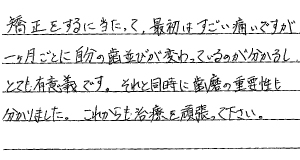 矯正をするに当たって、最初はすごい痛いですが
一ヶ月ごとに自分の歯並びが変わっているのが分かるし、
とても有意義です。それと同時に歯磨の重要性も
分かりました。これからも治療を頑張って下さい。